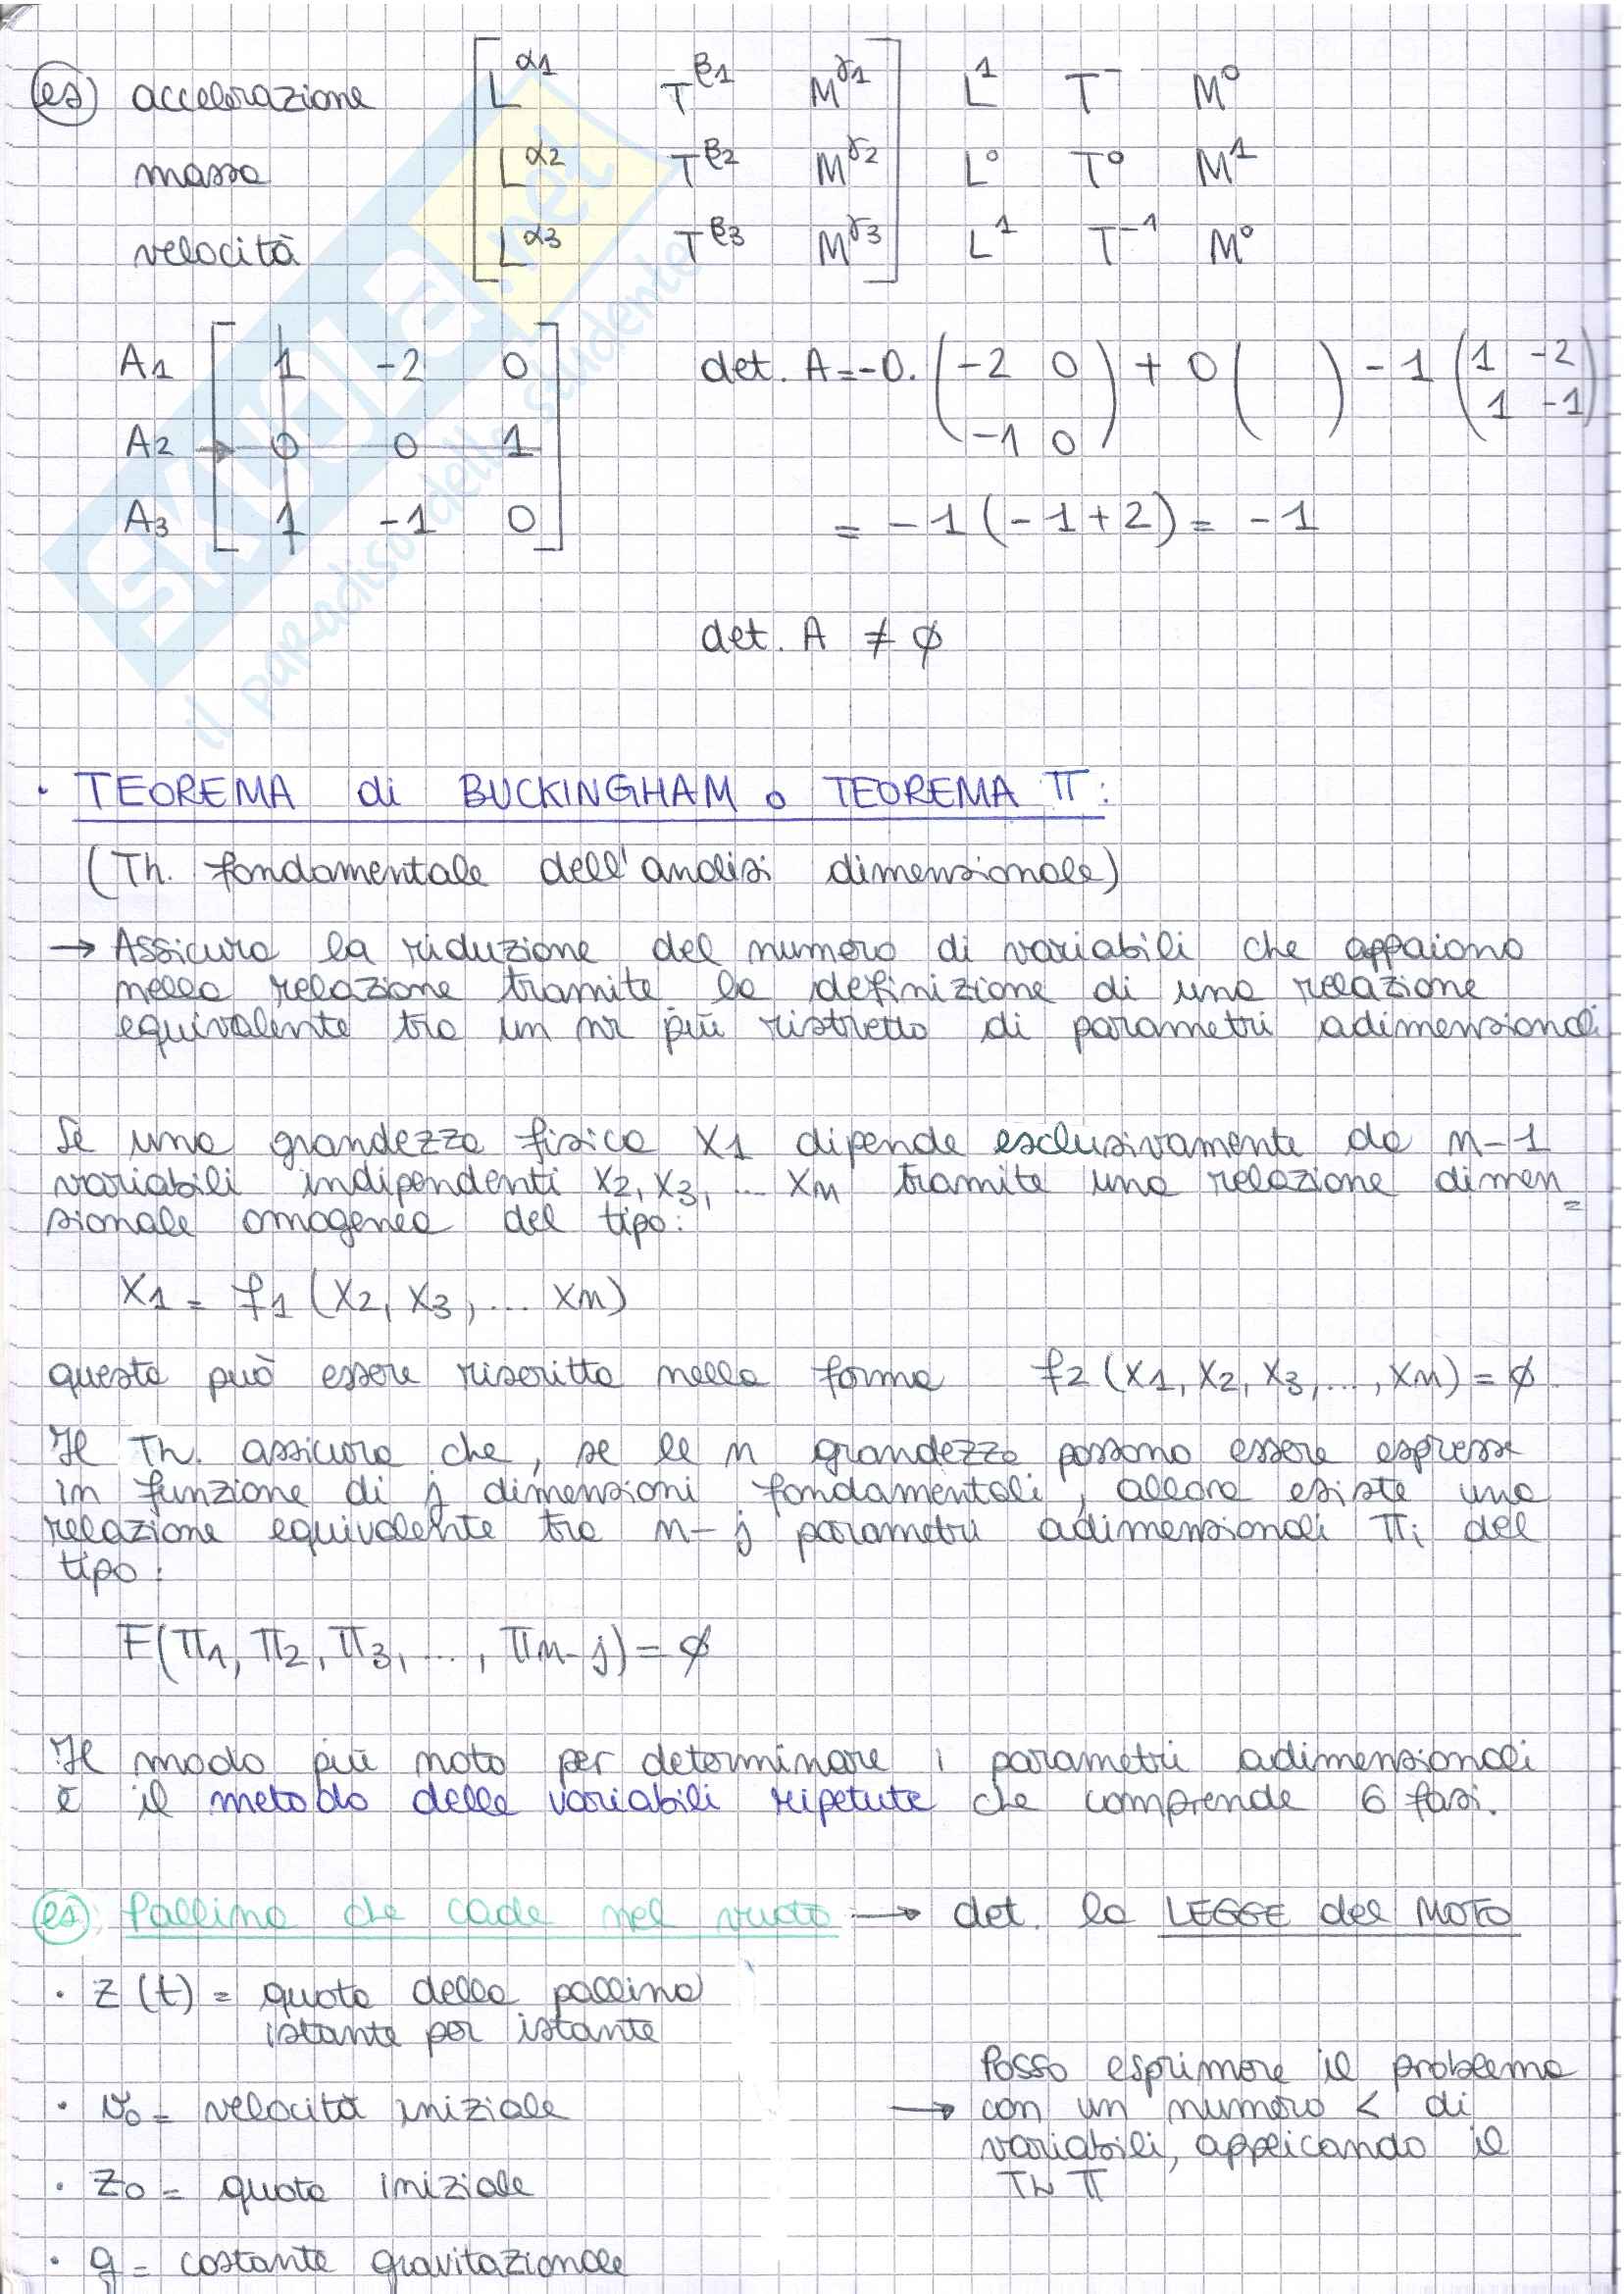 es) accelerazione [ L^α1 T^β1 M^γ1 ] L^1 T^- M^0
massa L^α2 T^β2 M^γ2 L^0 T^0 M^1
velocità L^α3 T^β3 M^γ3 L^1 T^-1 M^0
A1 [ 1 -2 0 ] det. A = -0. (-2 0 -1 0) + 0 ( ) - 1 (1 -2 1 -1)
A2 → 0 0 1
A3 1 -1 0 = -1 (-1+2) = -1
det. A ≠ ø
SKUOLA.net
il paradiso dello studente
· TEOREMA di BUCKINGHAM o TEOREMA π:
(Th. fondamentale dell'analisi dimensionale)
→ Assicura la riduzione del numero di variabili che appaiono
nella relazione tramite la definizione di una relazione
equivalente tra un nr più ristretto di parametri adimensionali
Se una grandezza fisica x1 dipende esclusivamente da n-1
variabili indipendenti x2, x3, ... xn tramite una relazione dimen=
sionale omogenea del tipo:
x1 = f1 (x2, x3, ... xn)
questa può essere riscritta nella forma f2 (x1, x2, x3, ..., xn) = ø
Il Th. assicura che, se le n grandezze possono essere espresse
in funzione di j dimensioni fondamentali, allora esiste una
relazione equivalente tra n-j parametri adimensionali πi del
tipo:
F(π1, π2, π3, ..., πn-j) = ø
Il modo più noto per determinare i parametri adimensionali
è il metodo delle variabili ripetute che comprende 6 fasi.
es) Pallina che cade nel vuoto → det. la LEGGE del MOTO
· z (t) = quota della pallina
istante per istante
· v0 = velocità iniziale
· z0 = quota iniziale
· g = costante gravitazionale
Posso esprimere il problema
→ con un numero < di
variabili, applicando il
Th π